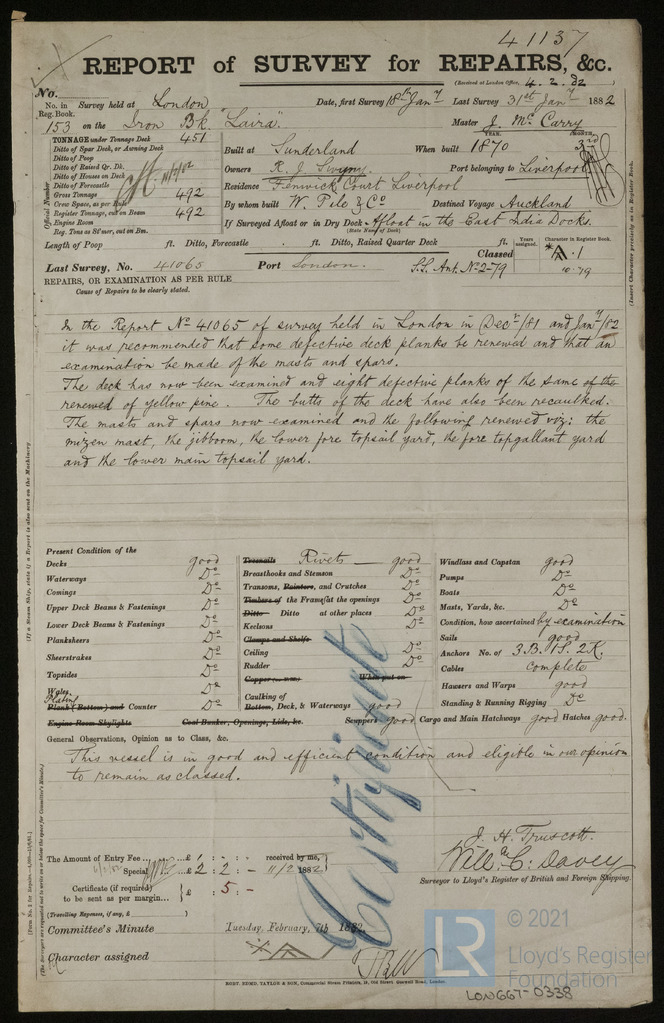 41137
REPORT of SURVEY for REPAIRS, &c.
(Received at London Office, 4. 2. 82
No.
No. in Reg. Book. Survey held at London Date, first Survey 18th Jany Last Survey 31st Jany 1882
153 on the Iron Bk. "Laira" Master J. Mc Carry
TONNAGE under Tonnage Deck 451
Ditto of Spar Deck, or Awning Deck
Ditto of Poop
Ditto of Raised Qr. Dk.
Ditto of Houses on Deck
Ditto of Forecastle
Gross Tonnage 492
Crew Space, as per Rule
Register Tonnage, cut on Beam 492
Engine Room
Reg. Tons as St'mer, cut on Bm.
Official Number
YEAR. MONTH.
Built at Sunderland When built 1870 3rd
Owners R. J. Swyny Port belonging to Liverpool
Residence Fenwick Court Liverpool
By whom built W. Pile & Co Destined Voyage Auckland
If Surveyed Afloat or in Dry Dock Afloat in the East India Docks.
(State Name of Dock)
Length of Poop ft. Ditto, Forecastle ft. Ditto, Raised Quarter Deck ft.
Years assigned. Character in Register Book.
Last Survey, No. 41065 Port London. Classed A.1
S.S. Ant. No 2-79 10.79
REPAIRS, OR EXAMINATION AS PER RULE
Cause of Repairs to be clearly stated.
In the Report No 41065 of survey held in London in Decr/81 and Jany/82
it was recommended that some defective deck planks be renewed and that an
examination be made of the masts and spars.
The deck has now been examined and eight defective planks of the same of the
renewed of yellow pine. The butts of the deck have also been recaulked.
The masts and spars now examined and the following renewed viz: the
mizen mast, the jibboom, the lower fore topsail yard, the fore topgallant yard
and the lower main topsail yard.
Present Condition of the
Decks good
Waterways Do
Comings Do
Upper Deck Beams & Fastenings Do
Lower Deck Beams & Fastenings Do
Planksheers Do
Sheerstrakes Do
Topsides Do
Wales Do
Plating
Plank (Bottom) and Counter Do
Engine Room Skylights Coal Bunker, Openings, Lids, &c.
Treenails Rivets good
Breasthooks and Stemson Do
Transoms, Pointers, and Crutches Do
Timbers of the Frame at the openings Do
Ditto Ditto at other places Do
Keelsons Do
Clamps and Shelfs
Ceiling Do
Rudder Do
Copper When put on
Caulking of Bottom, Deck, & Waterways good
Scuppers good Cargo and Main Hatchways good Hatches good.
Windlass and Capstan good
Pumps Do
Boats Do
Masts, Yards, &c. Do
Condition, how ascertained by examination
Sails good
Anchors No. of 3.B. 1S. 2K.
Cables complete
Hawsers and Warps good
Standing & Running Rigging Do
General Observations, Opinion as to Class, &c.
This vessel is in good and efficient condition and eligible in our opinion
to remain as classed.
Certificate
J. H. Truscott.
Will. C. Davey
Surveyor to Lloyd's Register of British and Foreign Shipping.
The Amount of Entry Fee ... £ : : - received by me,
Special £ 2 : 2 : - 11/2 1882
Certificate (if required) to be sent as per margin £ : 5 : -
(Travelling Expenses, if any, £ )
Committee's Minute Tuesday, February, 7th 1882.
Character assigned
ROBT. EDMD. TAYLOR & SON, Commercial Steam Printers, 19, Old Street, Goswell Road, London.
LR
© 2021
Lloyd's Register
Foundation
LON667-0338